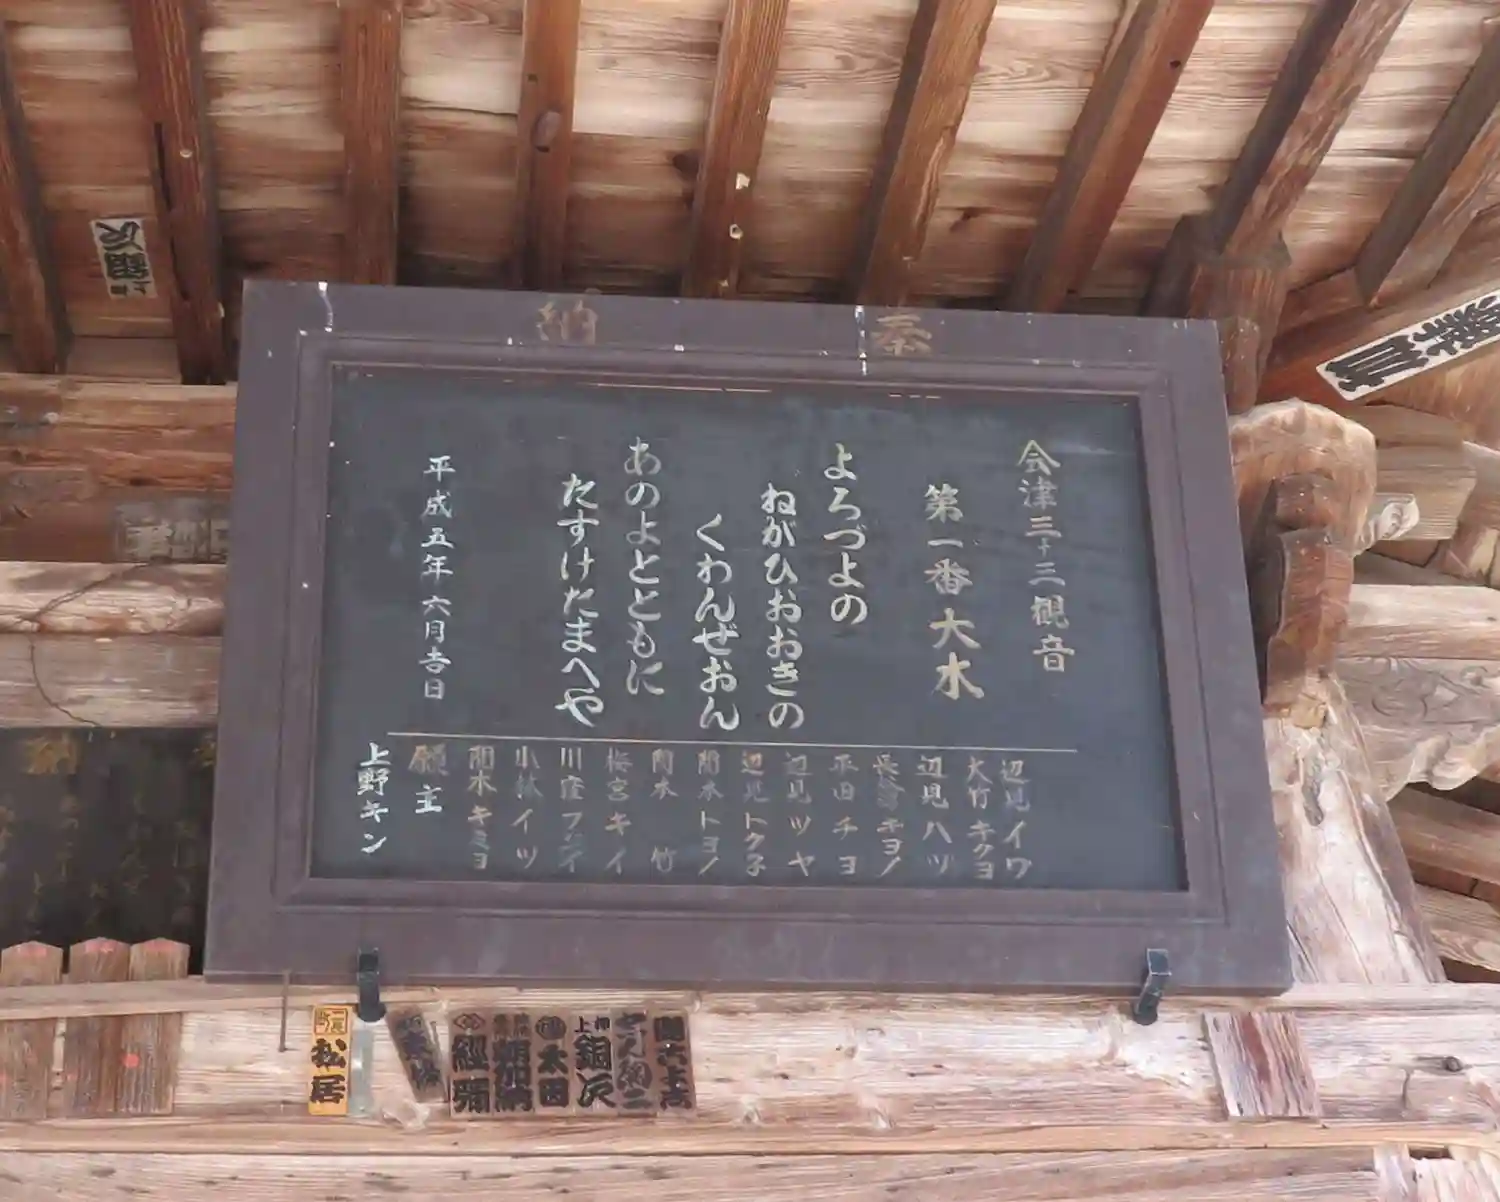 奉納
会津三十三観音
第一番 大木
よろづよの
ねがひおおきの
くわんぜおん
あのよとともに
たすけたまへや
平成五年六月吉日
辺見イワ
大竹キクヨ
辺見ハツ
平田チヨ
辺見ツヤ
辺見トク子
関本トヨノ
関本 竹
梅宮キイ
川窪フジイ
小林イツ
関本キミヨ
願主
上野キン
松居
太田